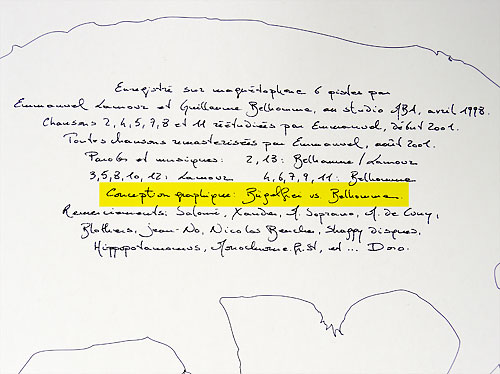 Enregistré sur magnétophone 6 pistes par
Emmanuel Lamour et Guillaume Belhomme, au studio MBA, avril 1998.
Chansons 2, 4, 5, 7, 8 et 11 réétudiées par Emmanuel, début 2001.
Toutes chansons remasterisées par Emmanuel, août 2001.
Paroles et musiques: 2, 13: Belhomme/Lamour
3, 5, 8, 10, 12: Lamour 4, 6, 7, 9, 11: Belhomme
Conception graphique: vs. Belhomme.
Remerciements: Salomé, Xandei, M. Soprano, M. de Cuny,
Jean-No, Nicolas Shaggy disques,
Hippopotamonus, et ... Doro.